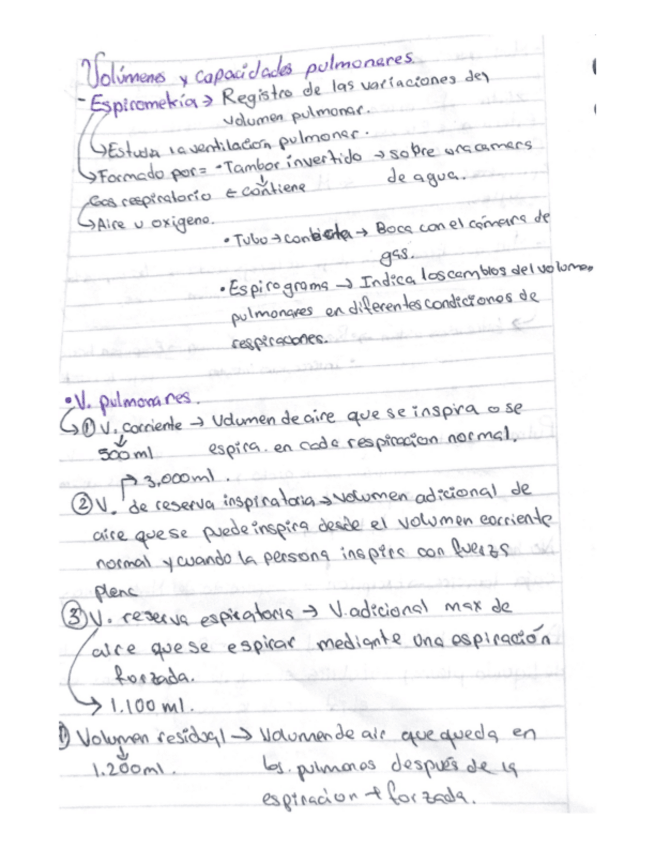 Volúmenes y capacidades pulmonares.
- Espirometría → Registro de las variaciones del
volumen pulmonar.
↳ Estudia la ventilación pulmonar.
↳ Formado por = • Tambor invertido → sobre una camara
de agua.
Gas respiratorio ← contiene
↳ Aire u oxigeno.
• Tubo → conecta → Boca con el cámara de
gas.
• Espirograma → Indica los cambios del volumen
pulmonares en diferentes condiciones de
respiraciones.
• V. pulmonares.
↳ ① V. corriente → Volumen de aire que se inspira o se
500 ml espira. en cada respiracion normal.
→ 3.000 ml.
② V. de reserva inspiratoria → volumen adicional de
aire que se puede inspira desde el volumen corriente
normal y cuando la persona inspira con fuerza
plena
③ V. reserva espiratoria → V. adicional max de
aire que se espirar mediante una espiración
forzada.
→ 1.100 ml.
Volumen residual → Volumen de air que queda en
1.200 ml. los pulmones después de la
espiracion + forzada.